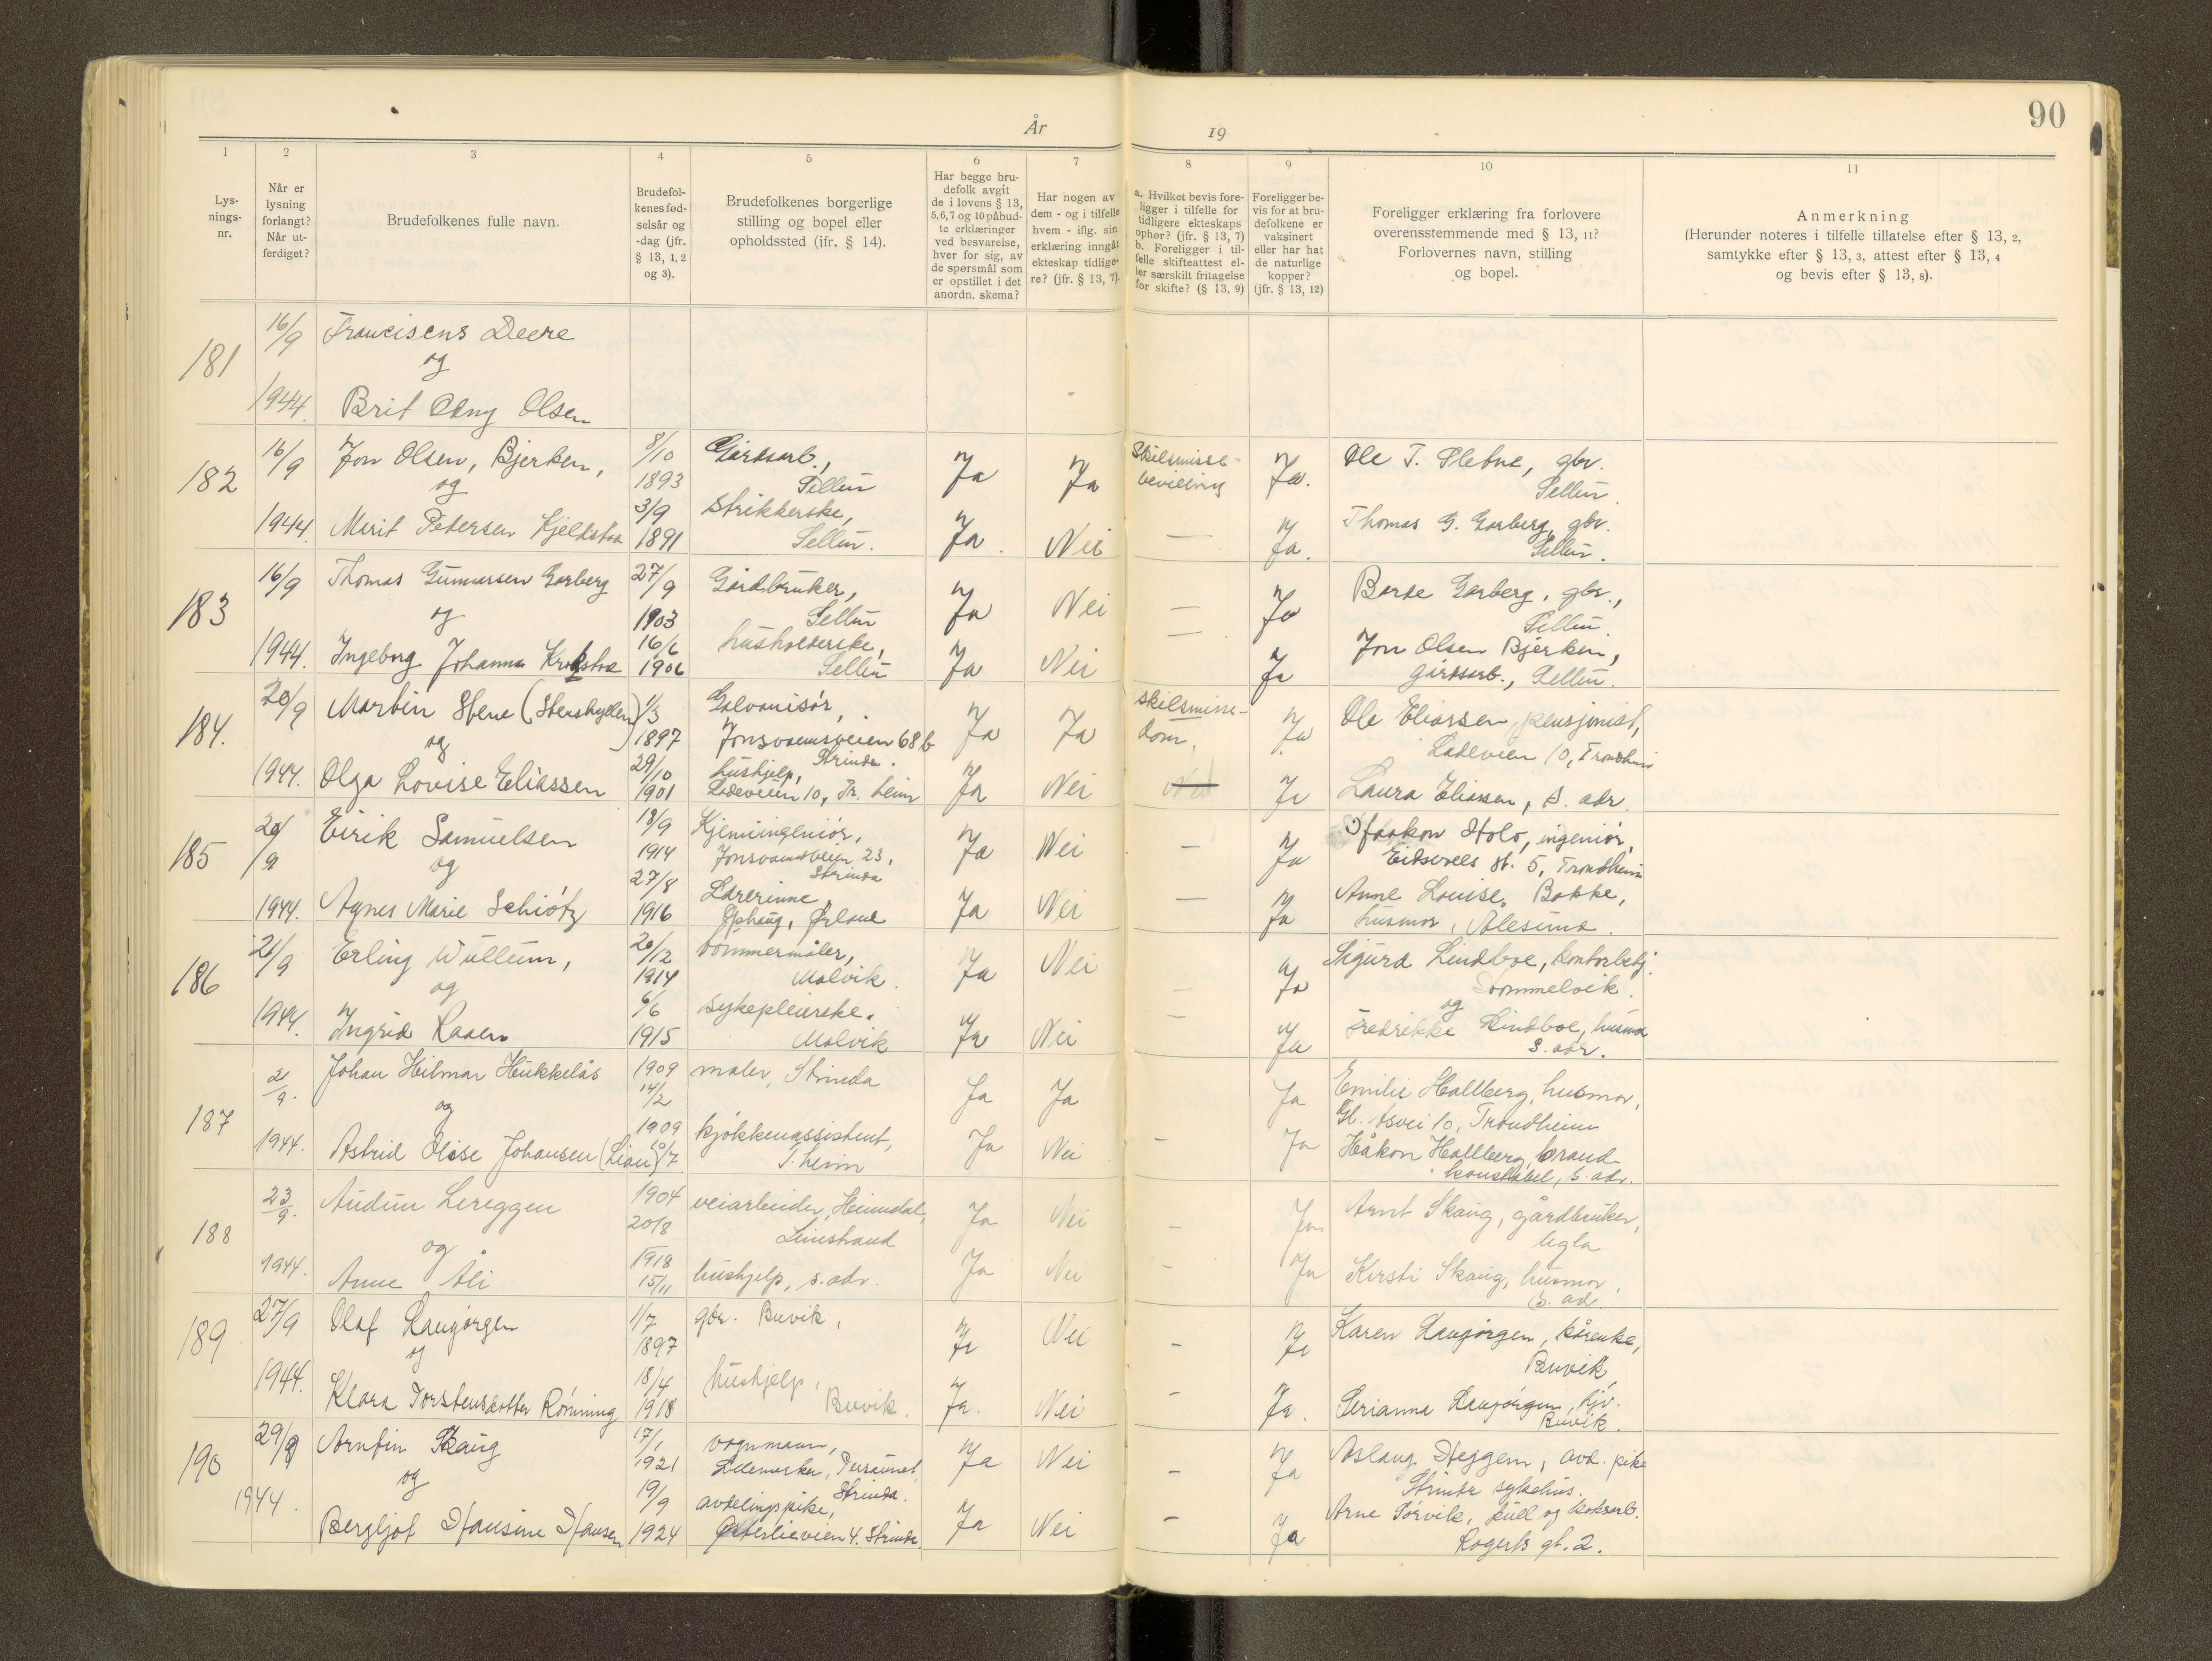 90
År
19
1
2
3
4
5
6
7
8
9
10
11
Lys-
nings-
nr.
Når er
lysning
forlangt?
Når ut-
ferdiget?
Brudefolkenes fulle navn.
Brudefol-
kenes fød-
selsår og
-dag (jfr.
§ 13, 1, 2
og 3).
Brudefolkenes borgerlige
stilling og bopel eller
opholdssted (jfr. § 14).
Har begge bru-
defolk avgit
de i lovens § 13,
5,6,7 og 10 påbud-
te erklæringer
ved besvarelse,
hver for sig, av
de spørsmål som
er opstillet i det
anordn. skema?
Har nogen av
dem - og i tilfelle
hvem - iflg. sin
erklæring inngått
ekteskap tidlige-
re? (jfr. § 13, 7).
a. Hvilket bevis fore-
ligger i tilfelle for
tidligere ekteskaps
ophør? (jfr. § 13, 7)
b. Foreligger i til-
felle skifteattest el-
ler særskilt fritagelse
for skifte? (§ 13, 9)
Foreligger be-
vis for at bru-
defolkene er
vaksinert
eller har hat
de naturlige
kopper?
(jfr. § 13, 12)
Foreligger erklæring fra forlovere
overensstemmende med § 13, 11?
Forlovernes navn, stilling
og bopel.
Anmerkning
(Herunder noteres i tilfelle tillatelse efter § 13, 2,
samtykke efter § 13, 3, attest efter § 13, 4
og bevis efter § 13, 8).
181
16/9
1944.
og
Brit Olsen
182
16/9
1944.
Jon Olsen, Bjerken,
og
Merit Petersen Kjeldstad
8/10
1893
3/9
1891
Gårdsarb.,
Selbu
Strikkerske,
Selbu.
Ja Ja
Skilsmisse-
bevilling
Ja.
Ja. Nei — Ja.
Ole T. gbr.
Selbu.
Thomas G. Garberg, gbr.
Selbu.
183
16/9
1944.
Thomas Gunnarsen Garberg
og
Ingeborg Johanna
27/9
1903
16/6
1906
Gårdbruker,
Selbu
husholderske,
Selbu
Ja Nei — Ja
Ja Nei — Ja
Garberg, gbr.,
Selbu.
Jon Olsen Bjerken,
gårdsarb., Selbu.
184.
20/9
1944.
Martin Stene
og
Olga Lovise Eliassen
1/3
1897
29/10
1901
Galvanisør,
Jonsvannsveien 68b
Strinda.
hushjelp,
Ladeveien 10, Tr.heim
Ja Ja
skilsmisse-
dom.
Ja
Ja Nei Ja
Ole Eliassen, pensjonist,
Ladeveien 10, Trondheim
Laura Eliassen, s. adr.
185
20/9
1944.
Eirik Samuelsen
og
Agnes Marie Schiøtz
18/9
1914
27/8
1916
Kjemiingeniør,
Jonsvannsveien 23,
Strinda
Lærerinne,
Ophaug, Ørland
Ja Nei — Ja
Ja Nei — Ja
Haakon Holo, ingeniør,
Eidsvolls gt. 5, Trondheim
Anne Louise Bakke,
husmor, Ålesund.
186
21/9
1944.
Erling Wullum,
og
Ingrid Raaen
20/12
1914
6/6
1915
tømmermåler,
Malvik.
sykepleierske.
Malvik
Ja Nei — Ja
Ja Nei — Ja
Sigurd Lindboe, kontorbetj.
Hommelvik.
og
Fredrikke Lindboe, husmor
s. adr.
187
21/9.
1944.
Johan Hilmar Hukkelås
og
Astrid Olise Johansen (Lian)
1909
14/2
1909
10/7
maler, Strinda
kjøkkenassistent,
T.heim
Ja Ja Ja
Ja Nei - Ja
Emilie Hallberg, husmor,
Gl. Åsvei 10, Trondheim
Håkon Hallberg, brand-
konstabel, s. adr.
188
23/9.
1944.
Audun Lereggen
og
Anne Åli
1904
20/8
1918
15/11
veiarbeider, Heimdal,
Leinstrand
hushjelp, s. adr.
Ja Nei - Ja
Ja Nei - Ja
Arnt Skaug, gårdbruker,
Ugla
Kirsti Skaug, husmor,
s. ad.
189
27/9
1944.
Olaf Laugørgen
og
Klara Torsteinsdotter Rønning
1/7
1897
18/4
1918
gbr. Buvik,
hushjelp,
Buvik.
Ja Nei - Ja
Ja. Nei - Ja.
Karen Langørgen, kårenke,
Buvik,
Serianna Langørgen, hjv.
Buvik.
190
29/9
1944.
Arnfin Skaug
og
Bergljot Hansine Hansen
17/1
1921
19/9
1924
vognmann,
Persaunet,
Strinda.
avdelingspike,
Østerlieveien 4. Strinda.
Ja Nei - Ja
Ja Nei - Ja
Aslaug Heggem, avd. pike
Strinda sykehus.
Arne Sørvik, kull og koksarb.
Rogerts gt. 2.